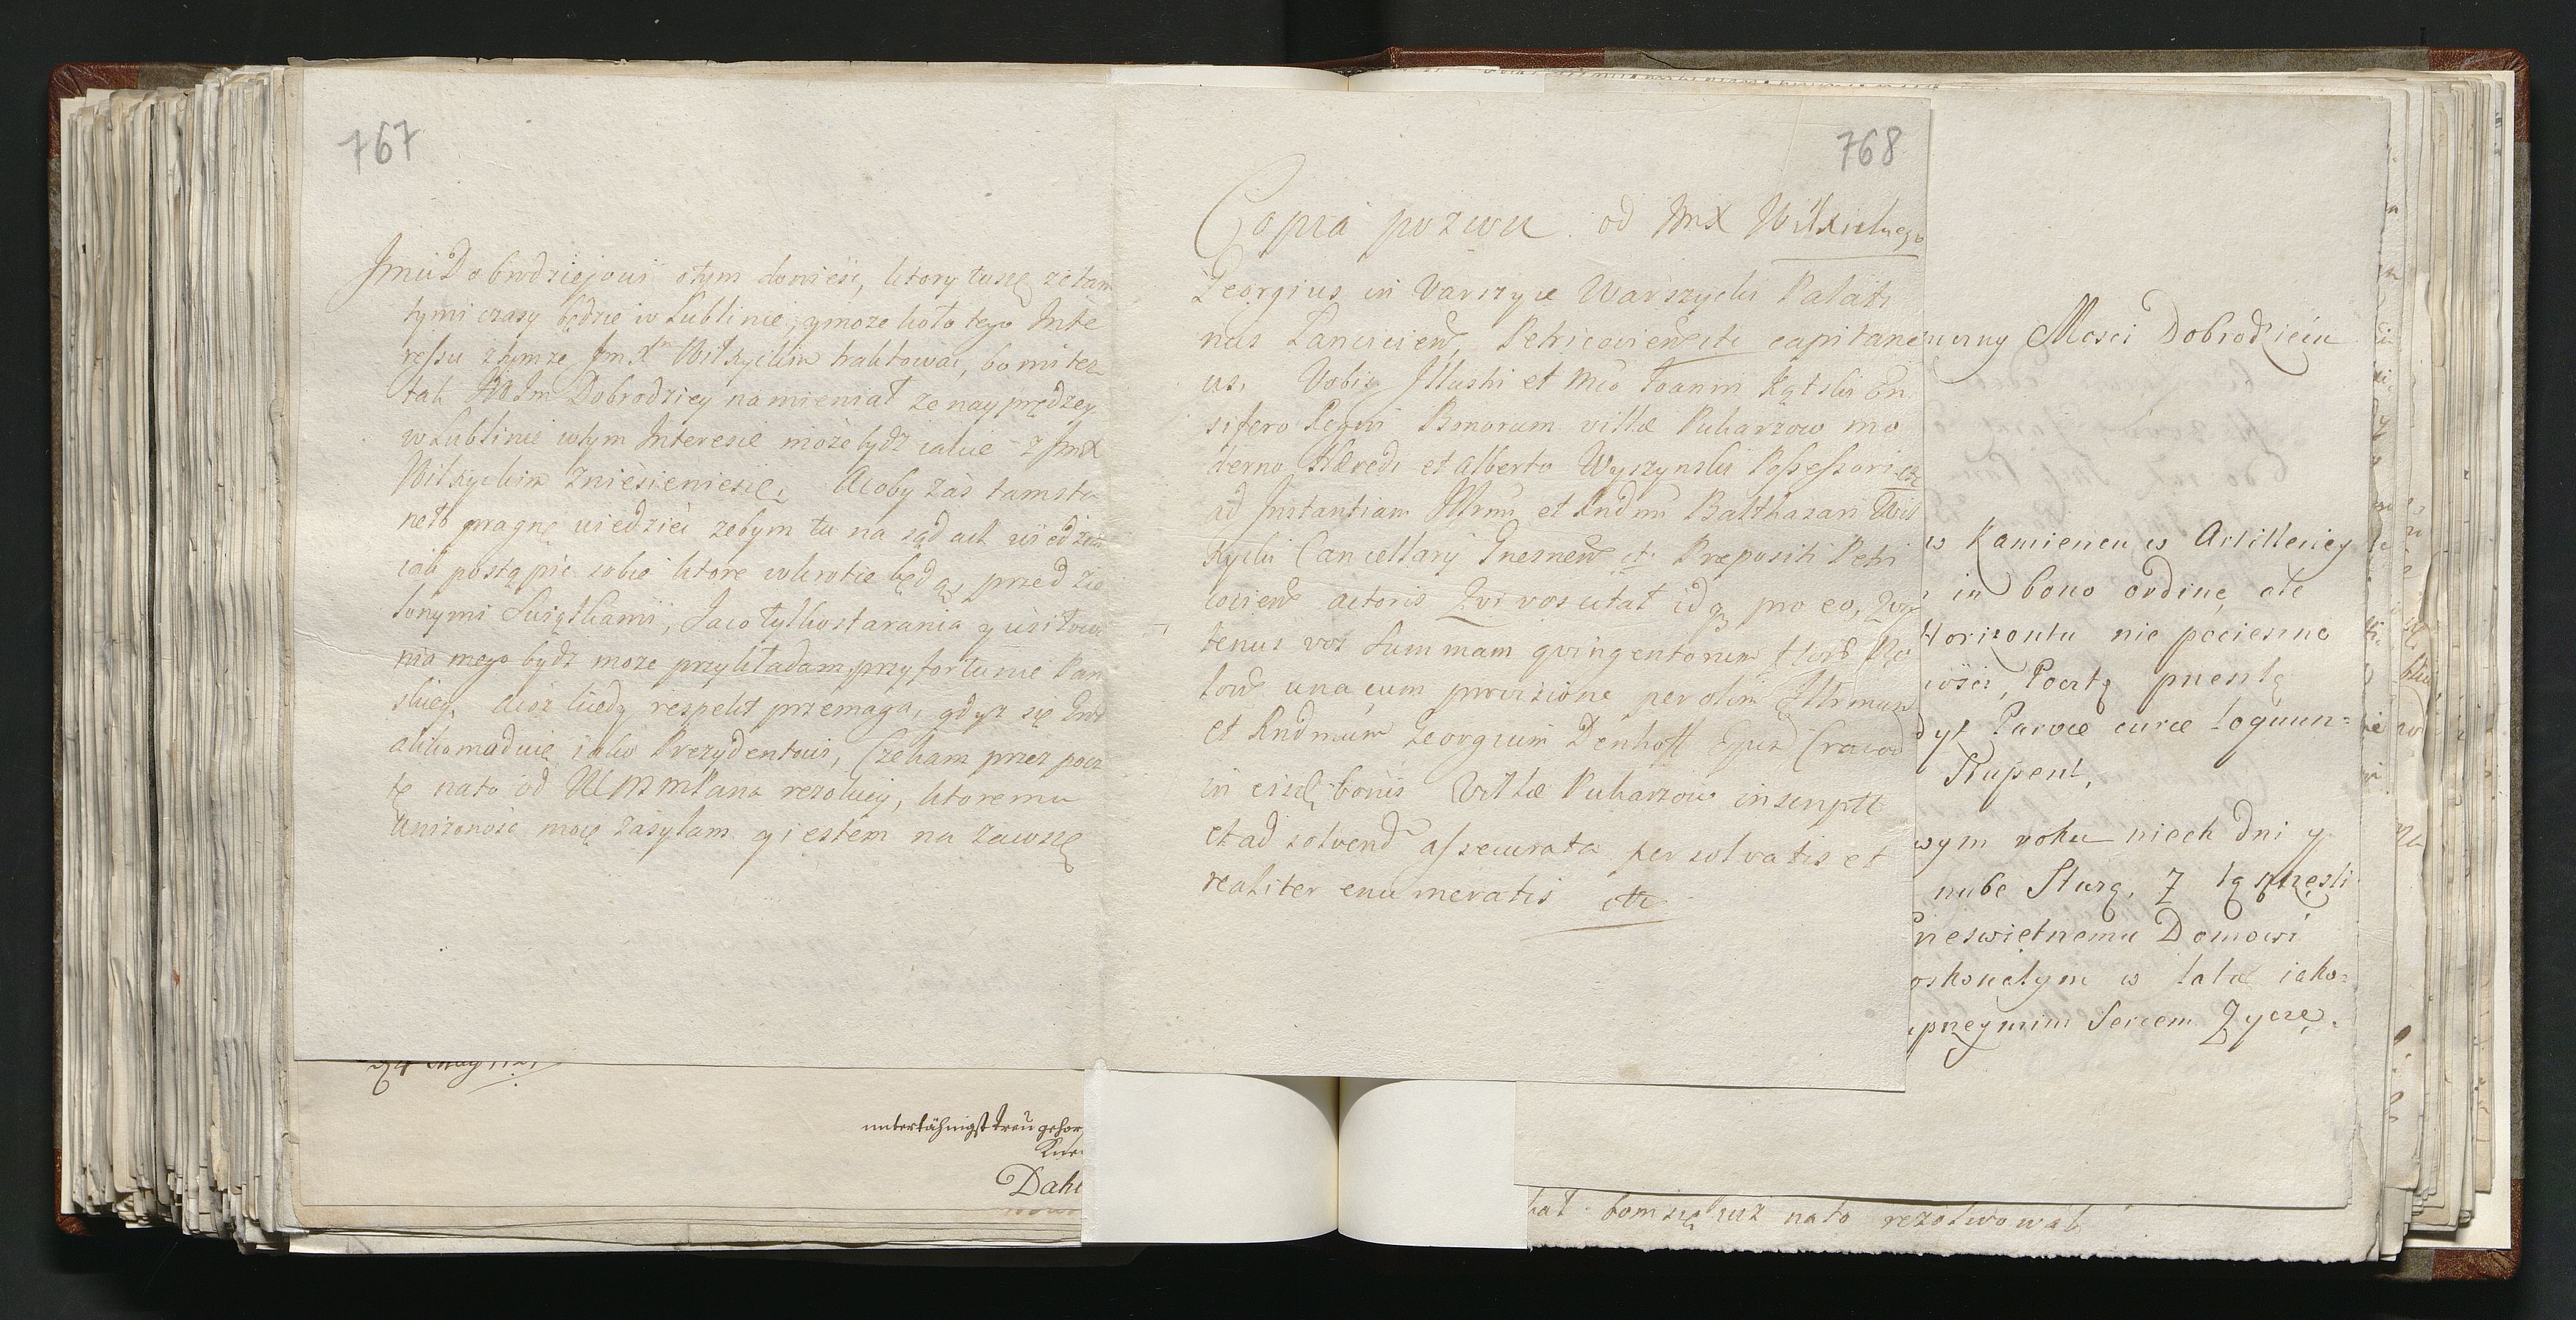 767
Jmći Dobrodziejowi otym donieść, ktory tuszę że tam
tymi czasy będzie w Lublinie, y może koło tego Inte
ressu z tymże Jm X Wilxyckim traktować, bo mi też
tak WoJm Dobrodziey namieniał że nayprędzey
w Lublinie wtym Interesie może bydź iakie z Jmx
Wilxyckim zniesienie się. Acoby zaś tamsta
neło pragnę wiedzieć żebym tu na sądach wiedział
iak postąpić sobie ktore wkrotce będą, przed zie
lonymi Swiątkami, Jaco tylko starania y usiłowa
nia mego bydź może przykładam przy fortunie Pan
skiey, acz kiedy respekt przemaga, gdyż się
akkomoduie iako Prezydentowi, Czekam przez pocz
tę nato od WMMPana rezolucyi, ktoremu
Uniżoność moię zasyłam y iestem na zawszę
unterthänigst treu gehor
Dahl
768
Copia pozwu od Jmx Wilxickiego
Georgius in Varszyce Warszycki Palati
nus Lanciciens, Petricoviensis etc capitane
us, Vobis Illustri et Mco Joanni Kątski En
sifero Regni Bonorum villæ Puharzow mo
derno Hæredi et Alberto Wyszynski Possessori etc
ad Instantiam Illrmi et Rndmi Balthazari Wil
xycki Cancellarÿ Gnesnens et Præpositi Petri
coviens actoris Qui vos citat idq pro eo, Qua
tenus vos Summam quingentorum flor Po
lon una cum provizione per olim Illrmum
et Rndmum Georgium Denhoff Epum Cracov
in eisd bonis Villæ Puharzow inscript
et ad solvend assecurata persolvatis et
realiter enumeratis etc
Mosci Dobrodzieiu
w Kamiencu w Artilleriey
in bono ordine, ale
Horizontu nie pocieszne
Pocztą
Parvæ curæ loquun=
Stupent,
wym roku niech dni y
nube
Domowi
w lata iako=
Sercem Zyczę.
bom się iuż nato rezolwował